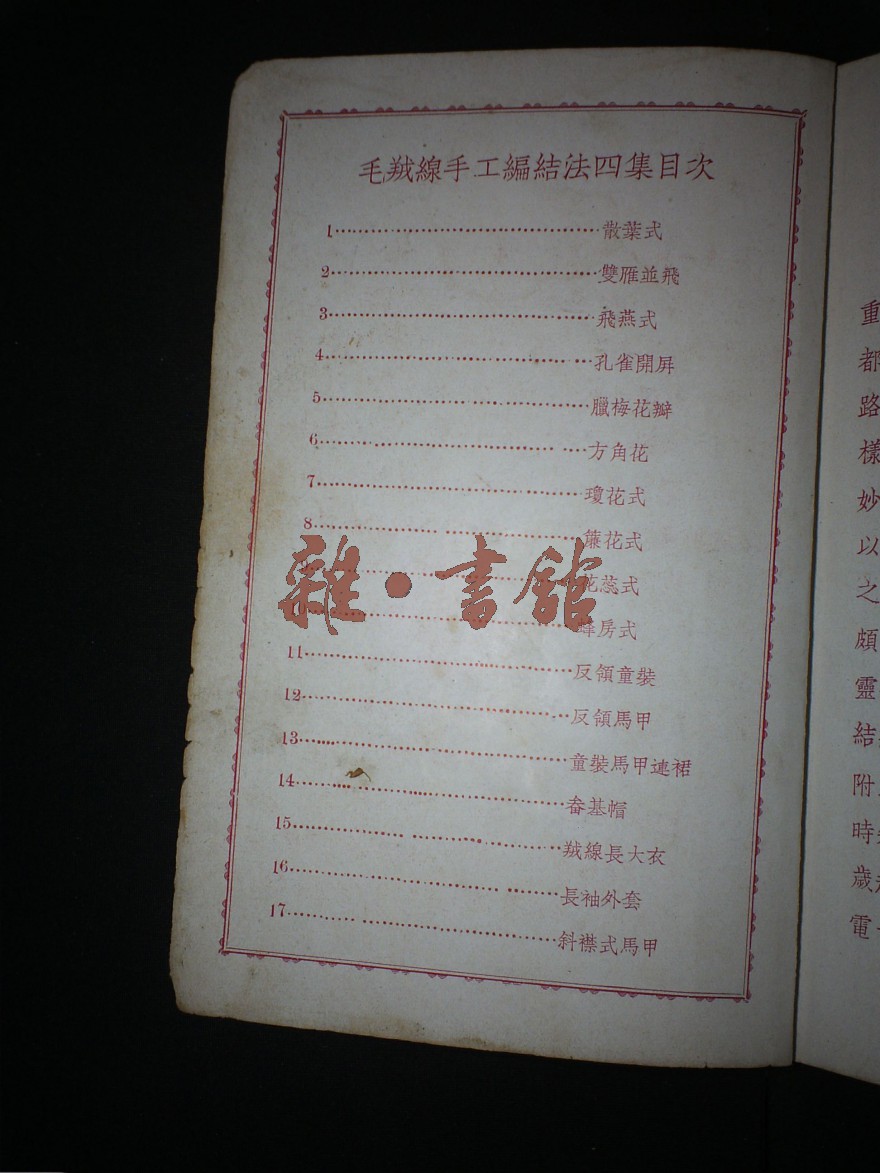 毛羢線手工編結法四集目次
1 散葉式
2 雙雁並飛
3 飛燕式
4 孔雀開屏
5 臘梅花瓣
6 方角花
7 瓊花式
8 簾花式
花蕊式
蜂房式
11 反領童裝
12 反領馬甲
13 童裝馬甲連裙
14 畚基帽
15 羢線長大衣
16 長袖外套
17 斜襟式馬甲
雜·書舘
重
都
路
樣
妙
以
之
頗
靈
結
附
時
歲
電